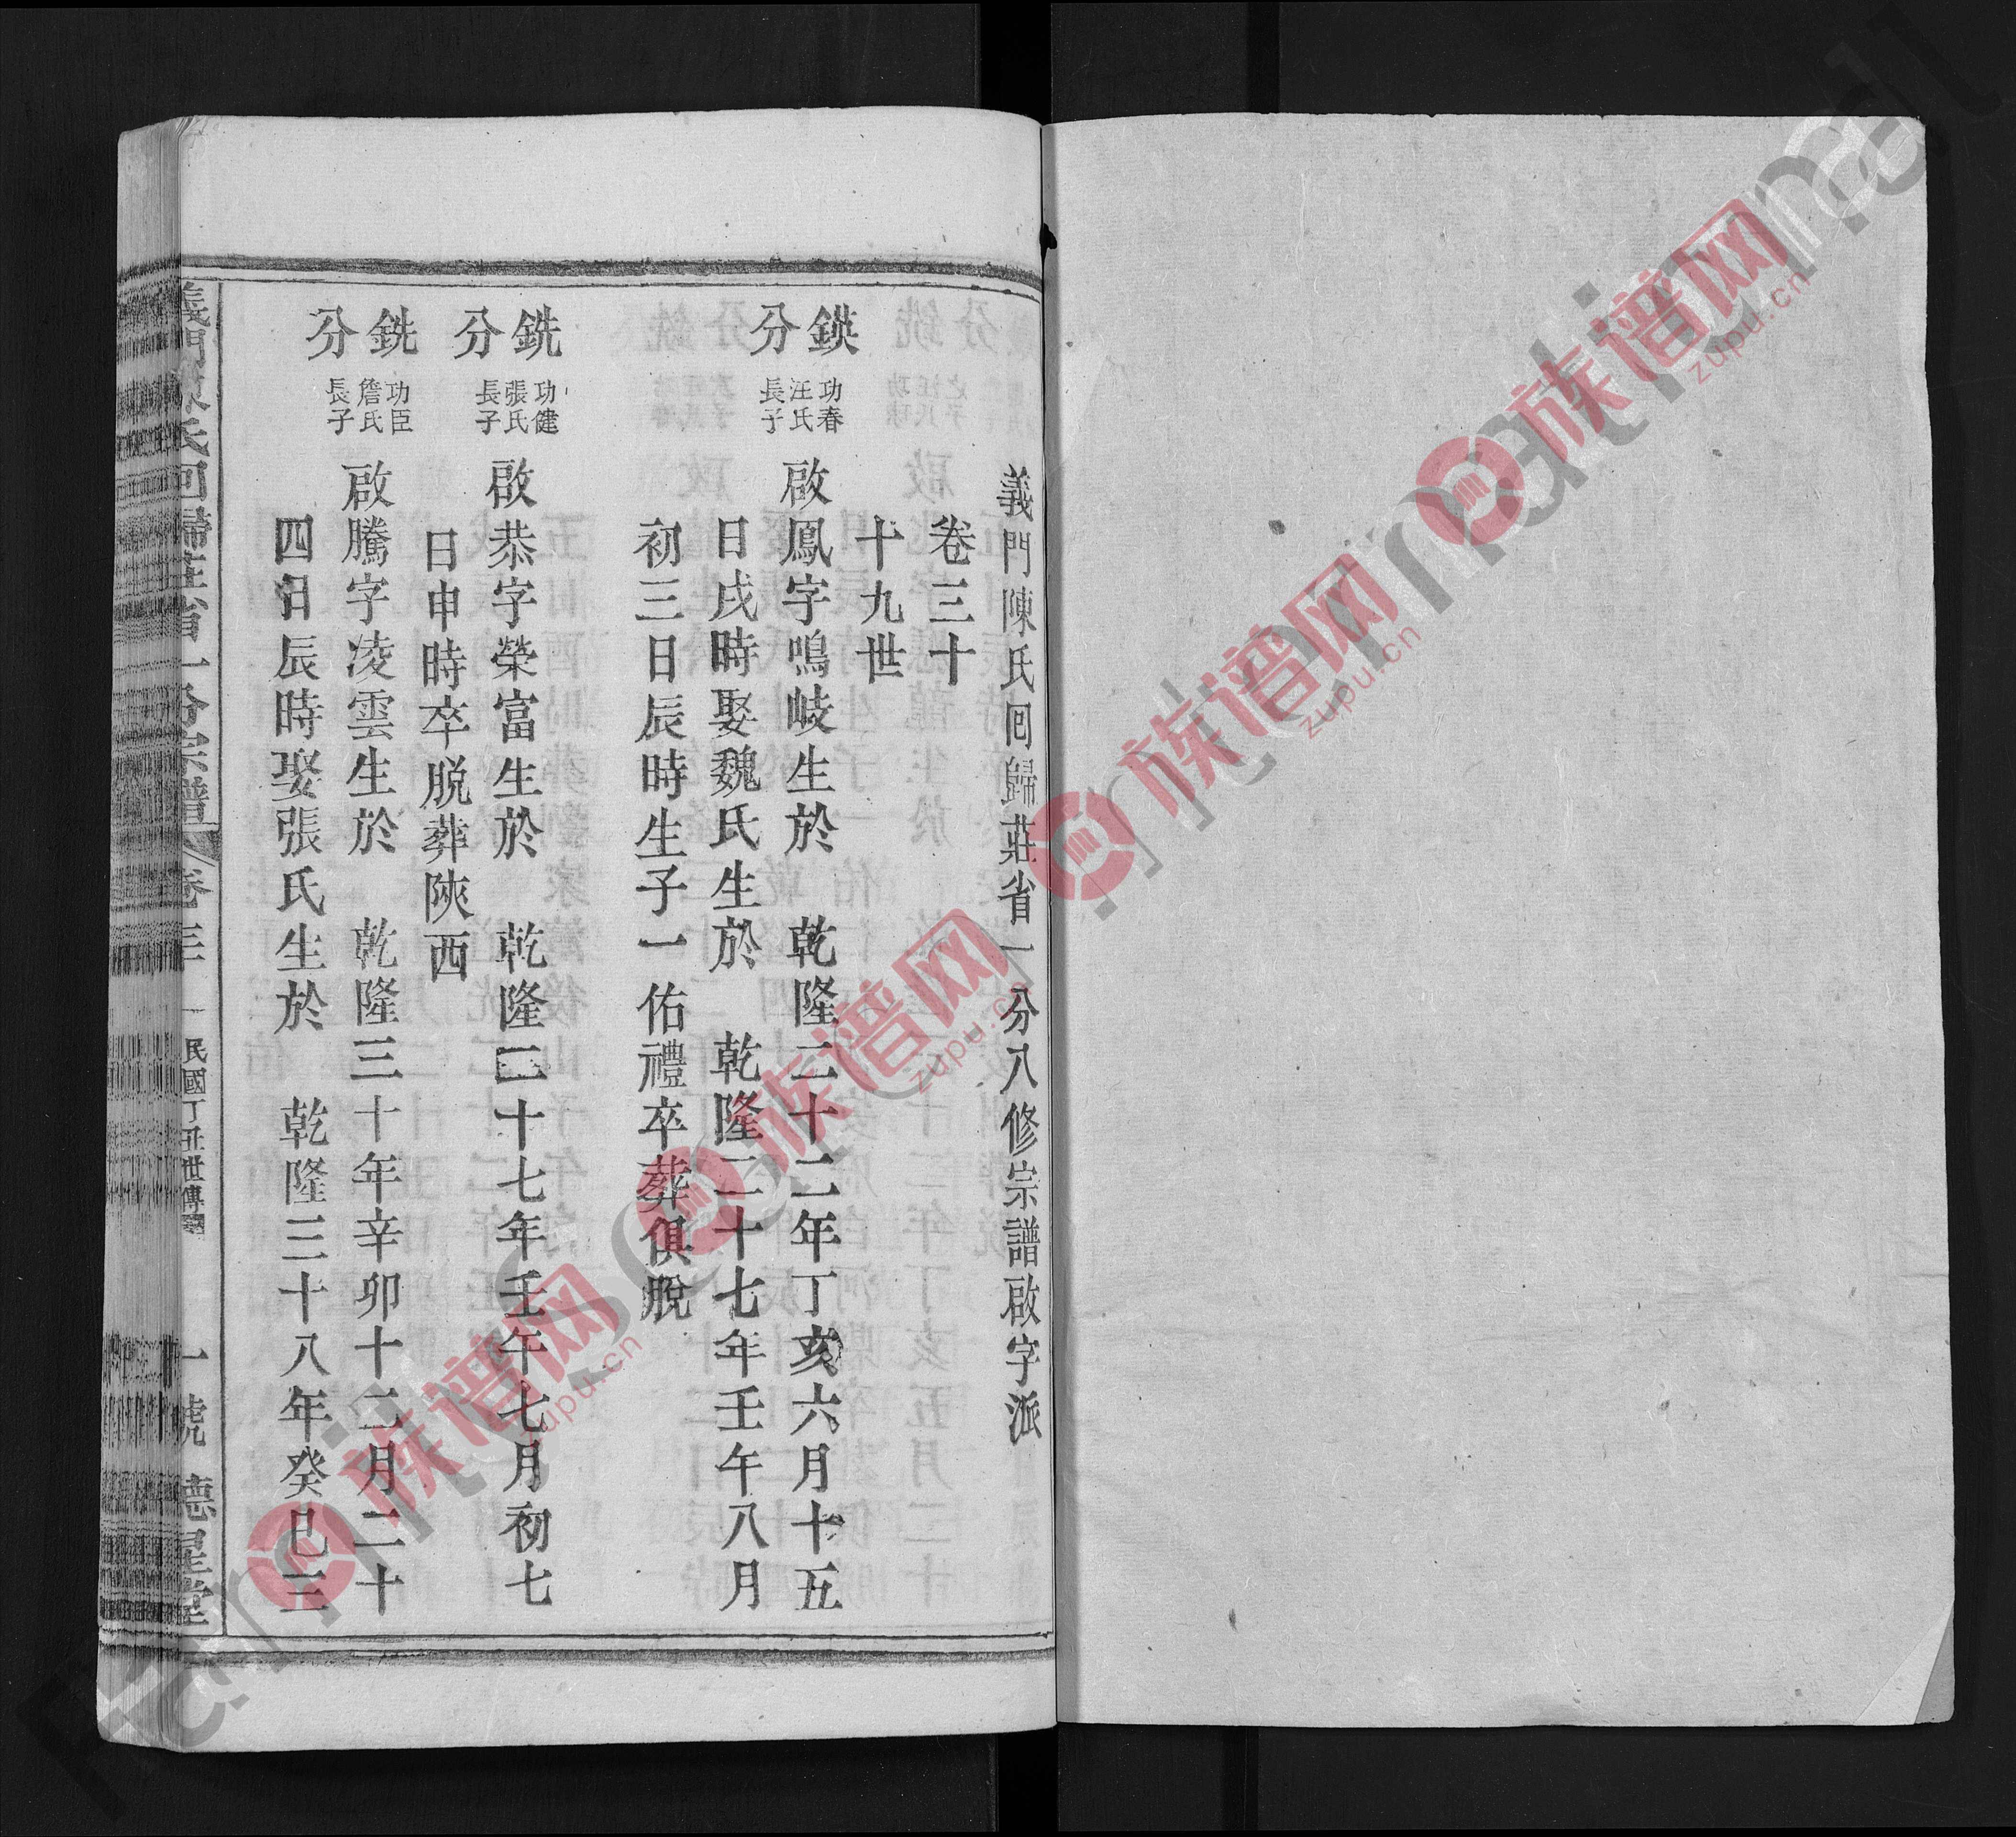 義門陳氏回歸莊省一分八修宗譜啟字派
卷三十
十九世
鉷分
功春
汪氏
長子
啟鳳字鳴岐生於 乾隆三十二年丁亥六月十五
日戌時娶魏氏生於 乾隆二十七年壬午八月
初三日辰時生子一佑禮卒葬俱脫
銑分
功健
張氏
長子
啟恭字榮富生於 乾隆二十七年壬午七月初七
日申時卒脫葬陝西
銑分
功臣
詹氏
長子
啟騰字凌雲生於 乾隆三十年辛卯十二月二十
四日辰時娶張氏生於 乾隆三十八年癸巳三
義門陳氏回歸莊省一分宗譜
卷三十
民國丁丑世傳
一號 德星堂
族谱网
zupu.cn
族谱网
zupu.cn
族谱网
zupu.cn
族谱网
zupu.cn
族谱网
zupu.cn
FamilySearch International